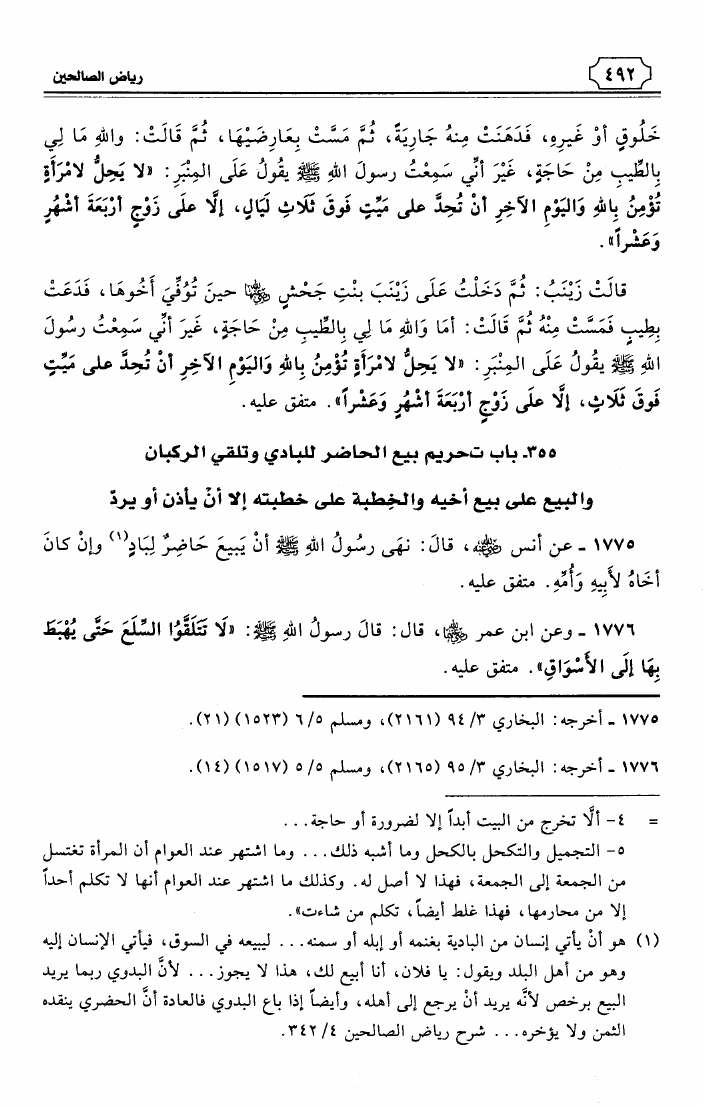 ٤٩٢
رياض الصالحين
خَلُوقٍ أوْ غَيرِهِ، فَدَهَنَتْ مِنهُ جَارِيَةً، ثُمَّ مَسَّتْ بِعَارِضَيْهَا، ثُمَّ قَالَتْ: واللهِ مَا لِي
بِالطِّيبِ مِنْ حَاجَةٍ، غَيْرَ أنِّي سَمِعْتُ رسولَ اللهِ ﷺ يقُولُ عَلَى المِنْبَرِ: «لا يَحِلُّ لامْرَأةٍ
تُؤْمِنُ بِاللهِ وَاليَوْمِ الآخِرِ أنْ تُحِدَّ على مَيِّتٍ فَوقَ ثَلَاثِ لَيَالٍ، إلَّا علَى زَوْجٍ أرْبَعَةَ أشْهُرٍ
وَعَشْراً».
قالَتْ زَيْنَبُ: ثُمَّ دَخَلْتُ عَلَى زَيْنَبَ بنْتِ جَحْشٍ رضي الله عنها حينَ تُوُفِّيَ أَخُوهَا، فَدَعَتْ
بِطِيبٍ فَمَسَّتْ مِنْهُ ثُمَّ قَالَتْ: أمَا وَاللهِ مَا لِي بِالطِّيبِ مِنْ حَاجَةٍ، غَيرَ أنِّي سَمِعْتُ رسُولَ
اللهِ ﷺ يقُولُ عَلَى المِنْبَرِ: «لا يَحِلُّ لامْرَأةٍ تُؤْمِنُ بِاللهِ وَاليَوْمِ الآخِرِ أنْ تُحِدَّ على مَيِّتٍ
فَوقَ ثَلَاثٍ، إلَّا علَى زَوْجٍ أرْبَعَةَ أشْهُرٍ وَعَشْراً». متفق عليه.
٣٥٥ـ باب تحريم بيع الحاضر للبادي وتلقي الركبان
والبيع على بيع أخيه والخِطبة على خطبته إلا أنْ يأذن أو يردّ
١٧٧٥ ـ عن أنس رضي الله عنه، قالَ: نهَى رسُولُ اللهِ ﷺ أنْ يَبيعَ حَاضِرٌ لِبَادٍ(١) وإنْ كانَ
أخَاهُ لأَبِيهِ وَأُمِّهِ. متفق عليه.
١٧٧٦ ـ وعن ابن عمر رضي الله عنهما، قال: قالَ رسولُ اللهِ ﷺ: «لَا تَتَلَقَّوُا السِّلَعَ حَتَّى يُهْبَطَ
بِهَا إلَى الأَسْوَاقِ». متفق عليه.
١٧٧٥ ـ أخرجه: البخاري ٩٤/٣ (٢١٦١)، ومسلم ٦/٥ (١٥٢٣) (٢١).
١٧٧٦ ـ أخرجه: البخاري ٩٥/٣ (٢١٦٥)، ومسلم ٥/٥ (١٥١٧) (١٤).
= ٤- ألَّا تخرج من البيت أبداً إلا لضرورة أو حاجة...
٥- التجميل والتكحل بالكحل وما أشبه ذلك... وما اشتهر عند العوام أن المرأة تغتسل
من الجمعة إلى الجمعة، فهذا لا أصل له. وكذلك ما اشتهر عند العوام أنها لا تكلم أحداً
إلا من محارمها، فهذا غلط أيضاً، تكلم من شاءت».
(١) هو أنْ يأتي إنسان من البادية بغنمه أو إبله أو سمنه... ليبيعه في السوق، فيأتي الإنسان إليه
وهو من أهل البلد ويقول: يا فلان، أنا أبيع لك، هذا لا يجوز... لأنَّ البدوي ربما يريد
البيع برخص لأنَّه يريد أنْ يرجع إلى أهله، وأيضاً إذا باع البدوي فالعادة أنَّ الحضري ينقده
الثمن ولا يؤخره... شرح رياض الصالحين ٣٤٢/٤.